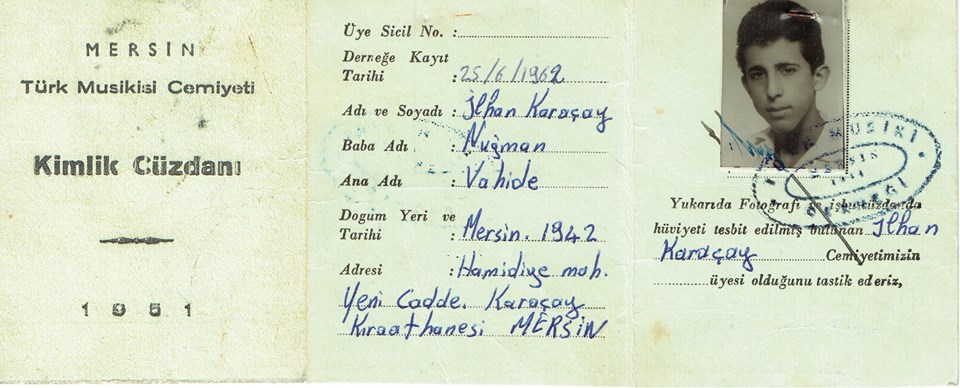 MERSİN
Türk Musikisi Cemiyeti
Kimlik Cüzdanı
1951
Üye Sicil No. :
Derneğe Kayıt
Tarihi : 25/6/1962
Adı ve Soyadı : İlhan Karaçay
Baba Adı : Nuğman
Ana Adı : Vahide
Dogum Yeri ve
Tarihi : Mersin. 1942
Adresi : Hamidiye mah.
Yeni Cadde. Karaçay
Kıraathanesi MERSİN
MUSİKİ
MERSİN
DERNEĞİ
Yukarıda Fotoğrafı ve işbu cüzdanda
hüviyeti tesbit edilmiş bulunan İlhan
Karaçay Cemiyetimizin
üyesi olduğunu tastik ederiz,